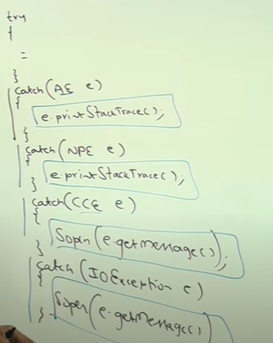 try
{
=
}
catch(AE e)
{
e.printStackTrace();
}
catch(NPE e)
{
e.printStackTrace();
}
catch(CCE e)
{
Sopln(e.getMessage());
}
catch(IOException e)
{
Sopln(e.getMessage())
}